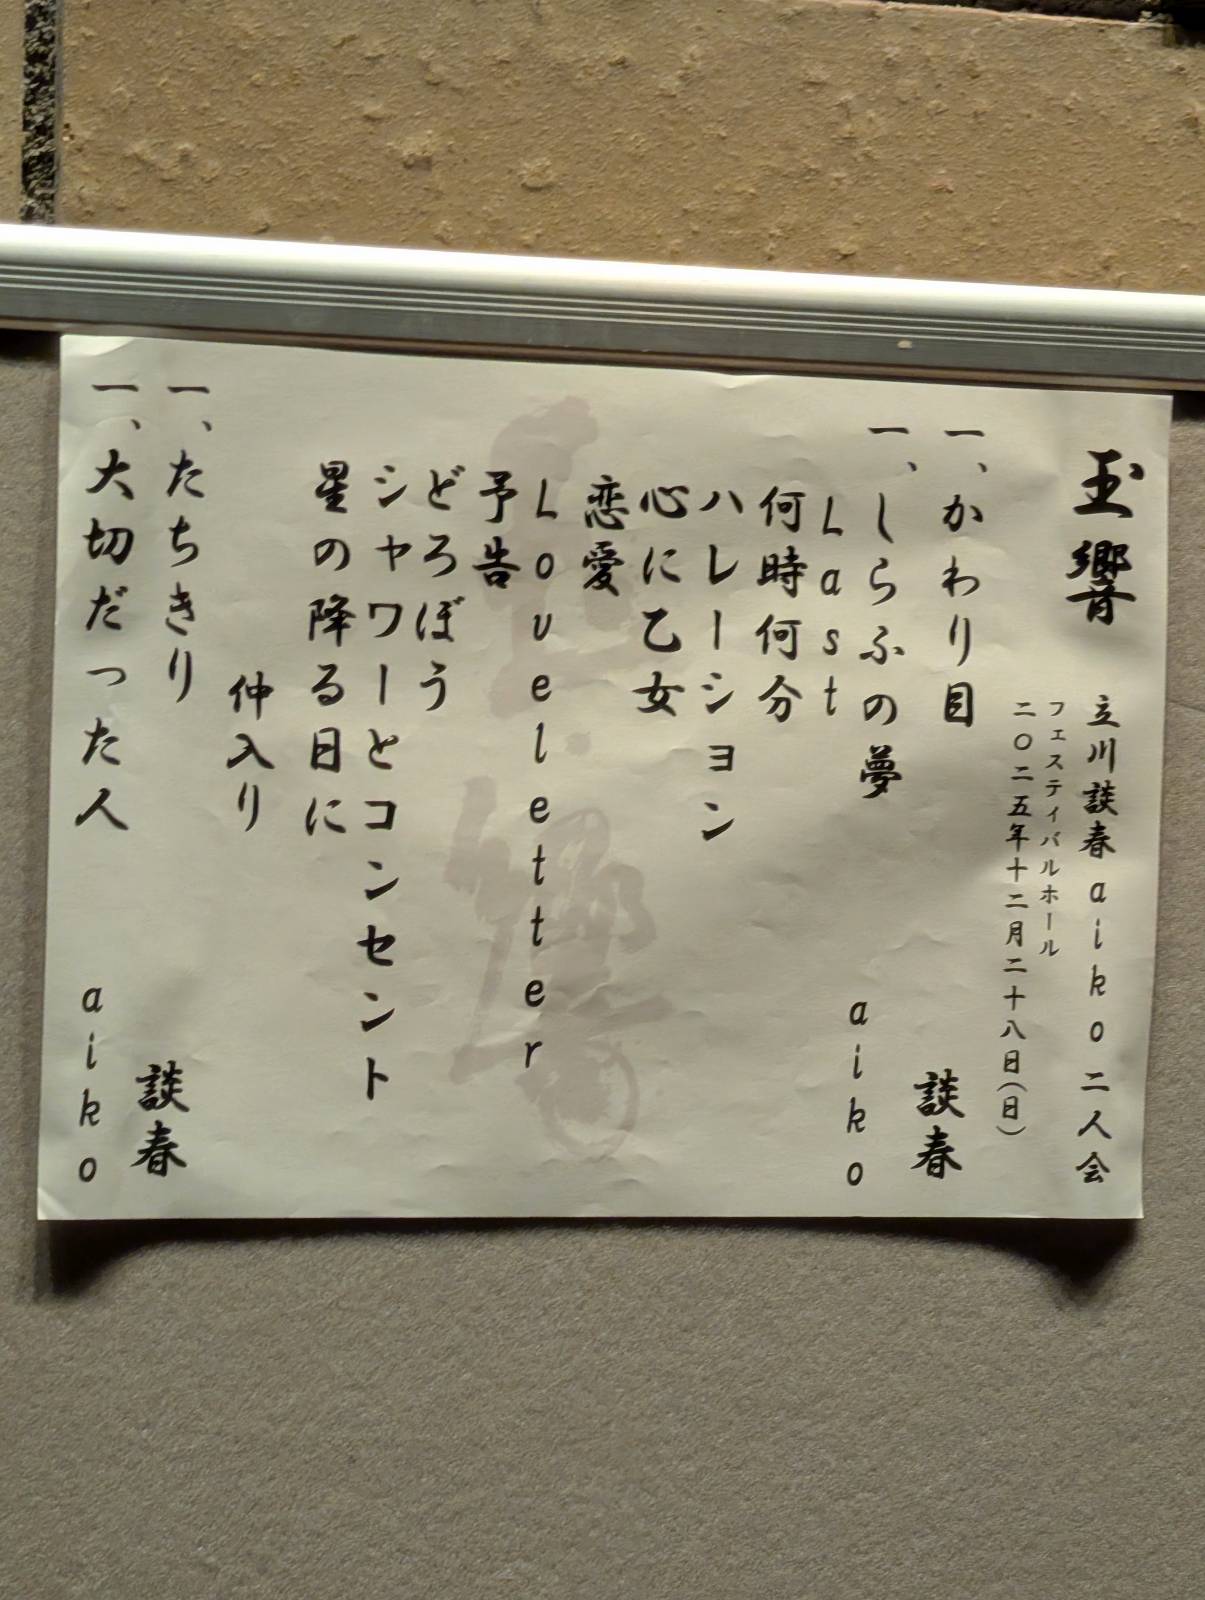 玉響 立川談春aiko二人会
フェスティバルホール
二〇二五年十二月二十八日(日)
一、かわり目 談春
一、しらふの夢 aiko
Last
何時何分
ハレーション
心に乙女
恋愛
Loveletter
予告
どろぼう
シャワーとコンセント
星の降る日に
仲入り
一、たちきり 談春
一、大切だった人 aiko
玉響